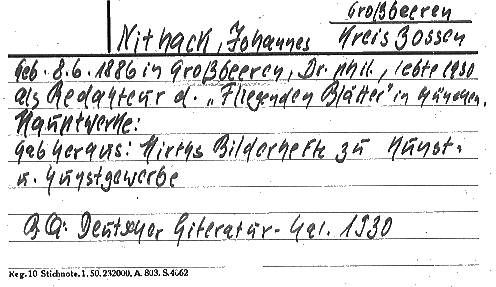 Großbeeren
Nithack, Johannes Kreis Zossen
Geb. 8.6.1886 in Großbeeren, Dr. phil., lebte 1930
als Redakteur d. „Fliegenden Blätter" in München.
Hauptwerke:
Gab heraus: Hirths Bilderhefte zu Kunst-
u. Kunstgewerbe
BQ: Deutscher Literatur-Kal. 1930
Reg. 10 Stichnote. 1. 50. 232000. A. 803. S. 4662